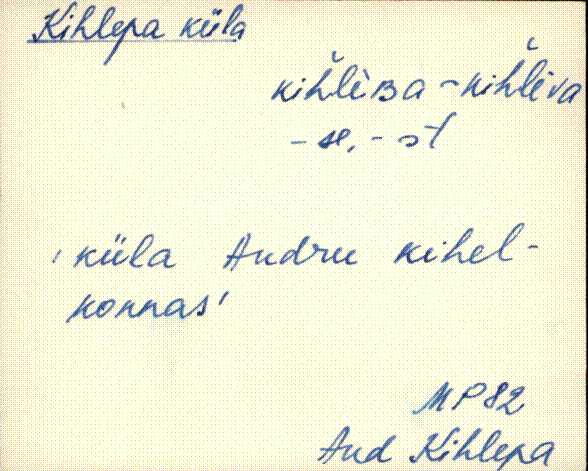 Kihlepa küla
kiȟlèʙa ~ kiȟlèva
- se, - st
'küla Audru kihel-
konnas'
MP 82
Aud Kihlepa